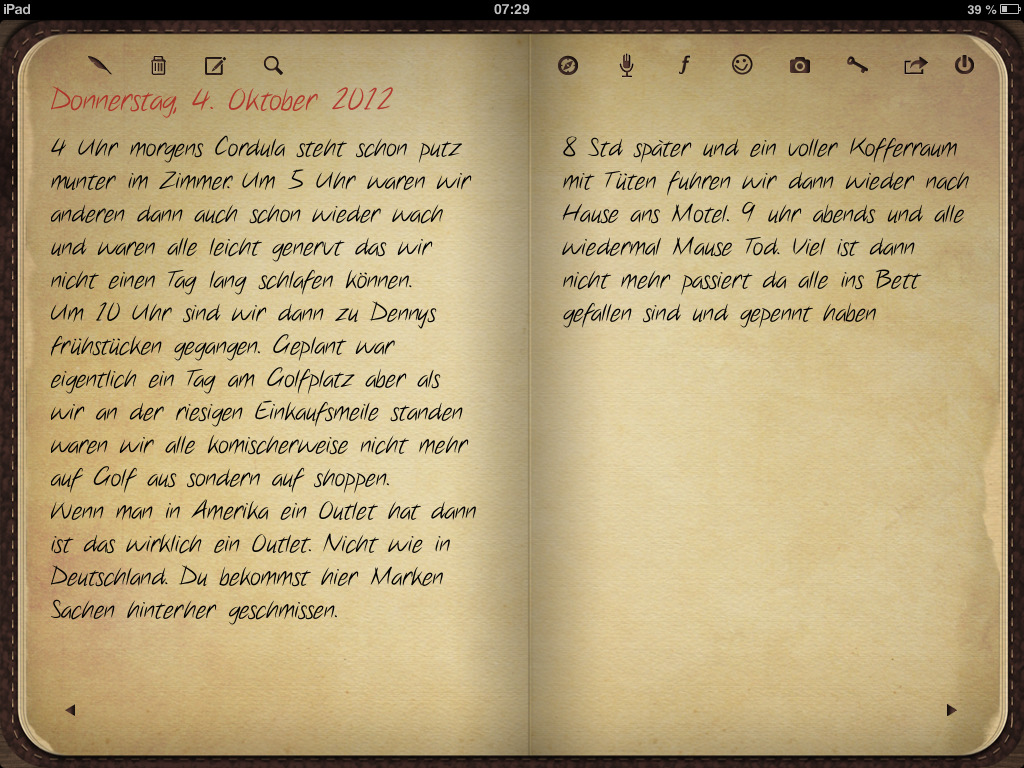 iPad 07:29 39 %
f
Donnerstag, 4. Oktober 2012
4 Uhr morgens Cordula steht schon putz
munter im Zimmer. Um 5 Uhr waren wir
anderen dann auch schon wieder wach
und waren alle leicht genervt das wir
nicht einen Tag lang schlafen können.
Um 10 Uhr sind wir dann zu Dennys
frühstücken gegangen. Geplant war
eigentlich ein Tag am Golfplatz aber als
wir an der riesigen Einkaufsmeile standen
waren wir alle komischerweise nicht mehr
auf Golf aus sondern auf shoppen.
Wenn man in Amerika ein Outlet hat dann
ist das wirklich ein Outlet. Nicht wie in
Deutschland. Du bekommst hier Marken
Sachen hinterher geschmissen.
8 Std später und ein voller Kofferraum
mit Tüten fuhren wir dann wieder nach
Hause ans Motel. 9 uhr abends und alle
wiedermal Mause Tod. Viel ist dann
nicht mehr passiert da alle ins Bett
gefallen sind und gepennt haben